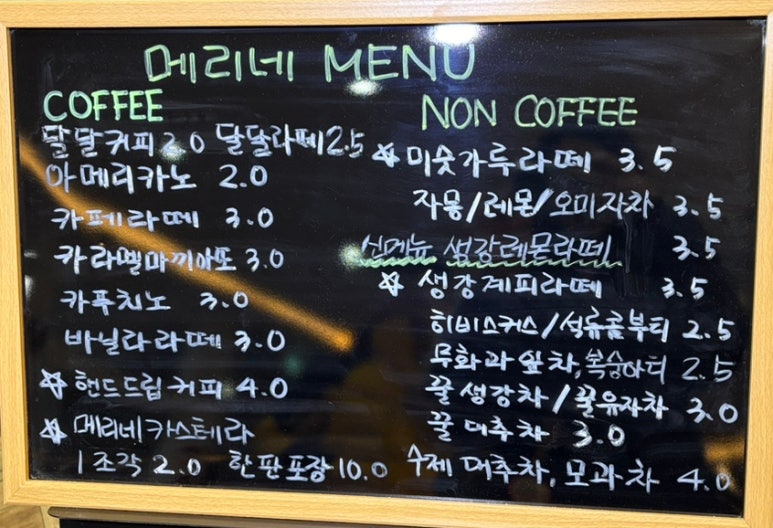 메리네 MENU
COFFEE
달달커피 2.0 달달라떼 2.5
아메리카노 2.0
카페라떼 3.0
카라멜마끼아또 3.0
카푸치노 3.0
바닐라라떼 3.0
☆ 핸드드립커피 4.0
☆ 메리네카스테라
1조각 2.0 한판포장 10.0
NON COFFEE
☆ 미숫가루라떼 3.5
자몽/레몬/오미자차 3.5
신메뉴 생강레몬라떼 3.5
☆ 생강계피라떼 3.5
히비스커스/석류콤부티 2.5
무화과잎차, 복숭아티 2.5
꿀생강차/꿀유자차 3.0
꿀대추차 3.0
수제 대추차, 모과차 4.0